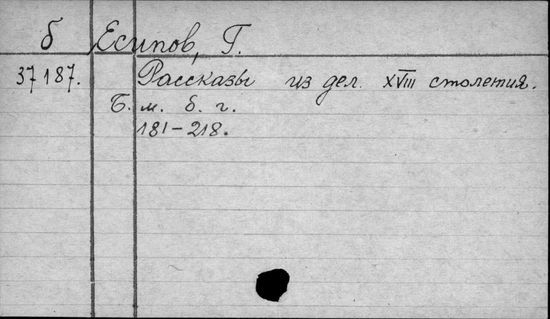 б Есипов, Г.
37187. Рассказы из дел. XVIII столетия.
Б. м. б. г.
181-218.